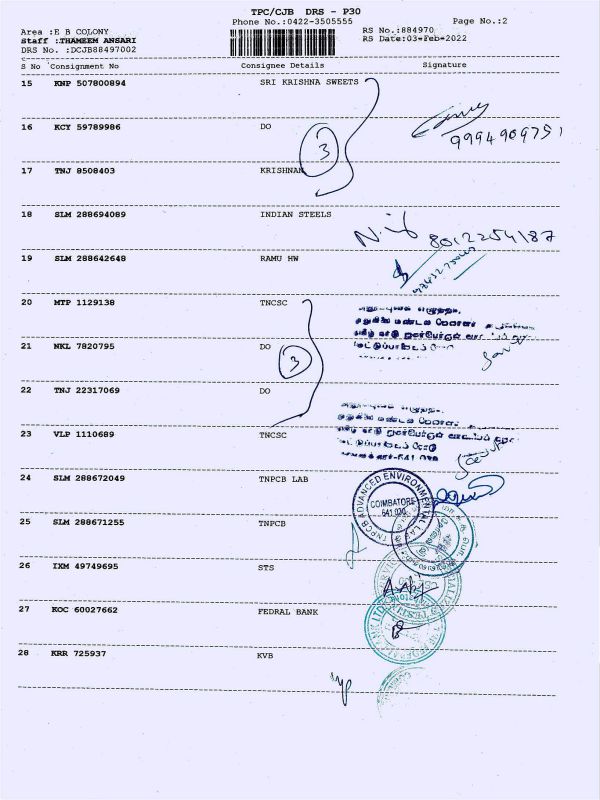 TPC/CJB DRS - P30
Phone No.:0422-3505555 Page No.:2
Area :E B COLONY RS No.:884970
Staff :THAMEEM ANSARI RS Date:03-Feb-2022
DRS No. :DCJB88497002
S No Consignment No Consignee Details Signature
15 KNP 507800894 SRI KRISHNA SWEETS
16 KCY 59789986 DO
9994909751
3
17 TNJ 8508403 KRISHNAN
18 SLM 288694089 INDIAN STEELS
8012254187
19 SLM 288642648 RAMU HW
20 MTP 1129138 TNCSC
21 NKL 7820795 DO
3
22 TNJ 22317069 DO
23 VLP 1110689 TNCSC
24 SLM 288672049 TNPCB LAB
TNPCB ADVANCED ENVIRONMENTAL LAB
COIMBATORE
25 SLM 288671255 TNPCB
26 IXM 49749695 STS
27 KOC 60027662 FEDRAL BANK
28 KRR 725937 KVB